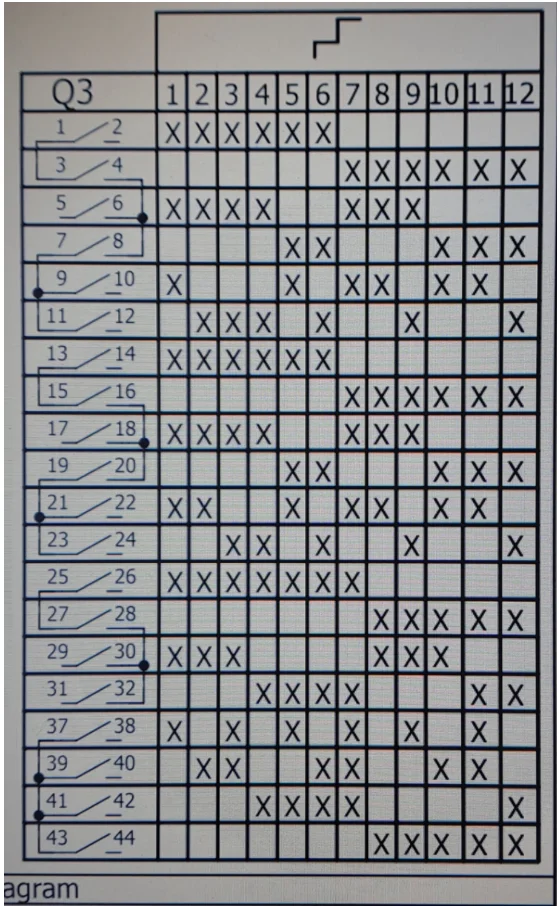 Q3 1 2 3 4 5 6 7 8 9 10 11 12
1 2 X X X X X X
3 4 X X X X X X
5 6 X X X X X X X
7 8 X X X X X
9 10 X X X X X X
11 12 X X X X X X
13 14 X X X X X X
15 16 X X X X X X
17 18 X X X X X X X
19 20 X X X X X
21 22 X X X X X X X
23 24 X X X X X
25 26 X X X X X X X
27 28 X X X X X
29 30 X X X X X X
31 32 X X X X X X
37 38 X X X X X X
39 40 X X X X X X
41 42 X X X X X
43 44 X X X X X
agram